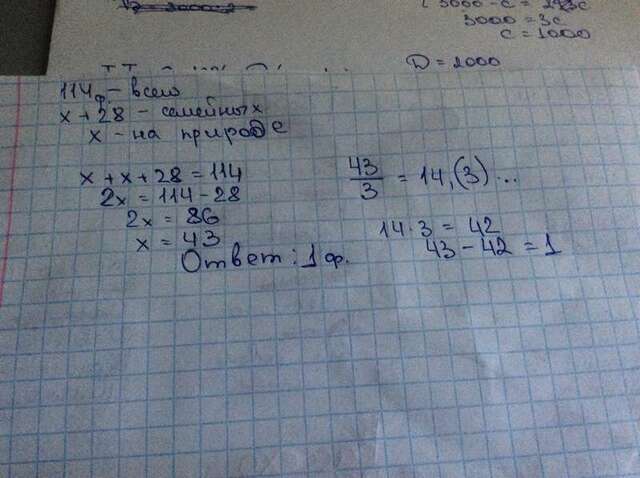 3000 = 3c
c = 1000
D = 2000
114ф. - всего
x + 28 - семейных
x - на природе
x + x + 28 = 114
2x = 114 - 28
2x = 86
x = 43
Ответ: 1 ф.
43/3 = 14,(3)...
14 · 3 = 42
43 - 42 = 1